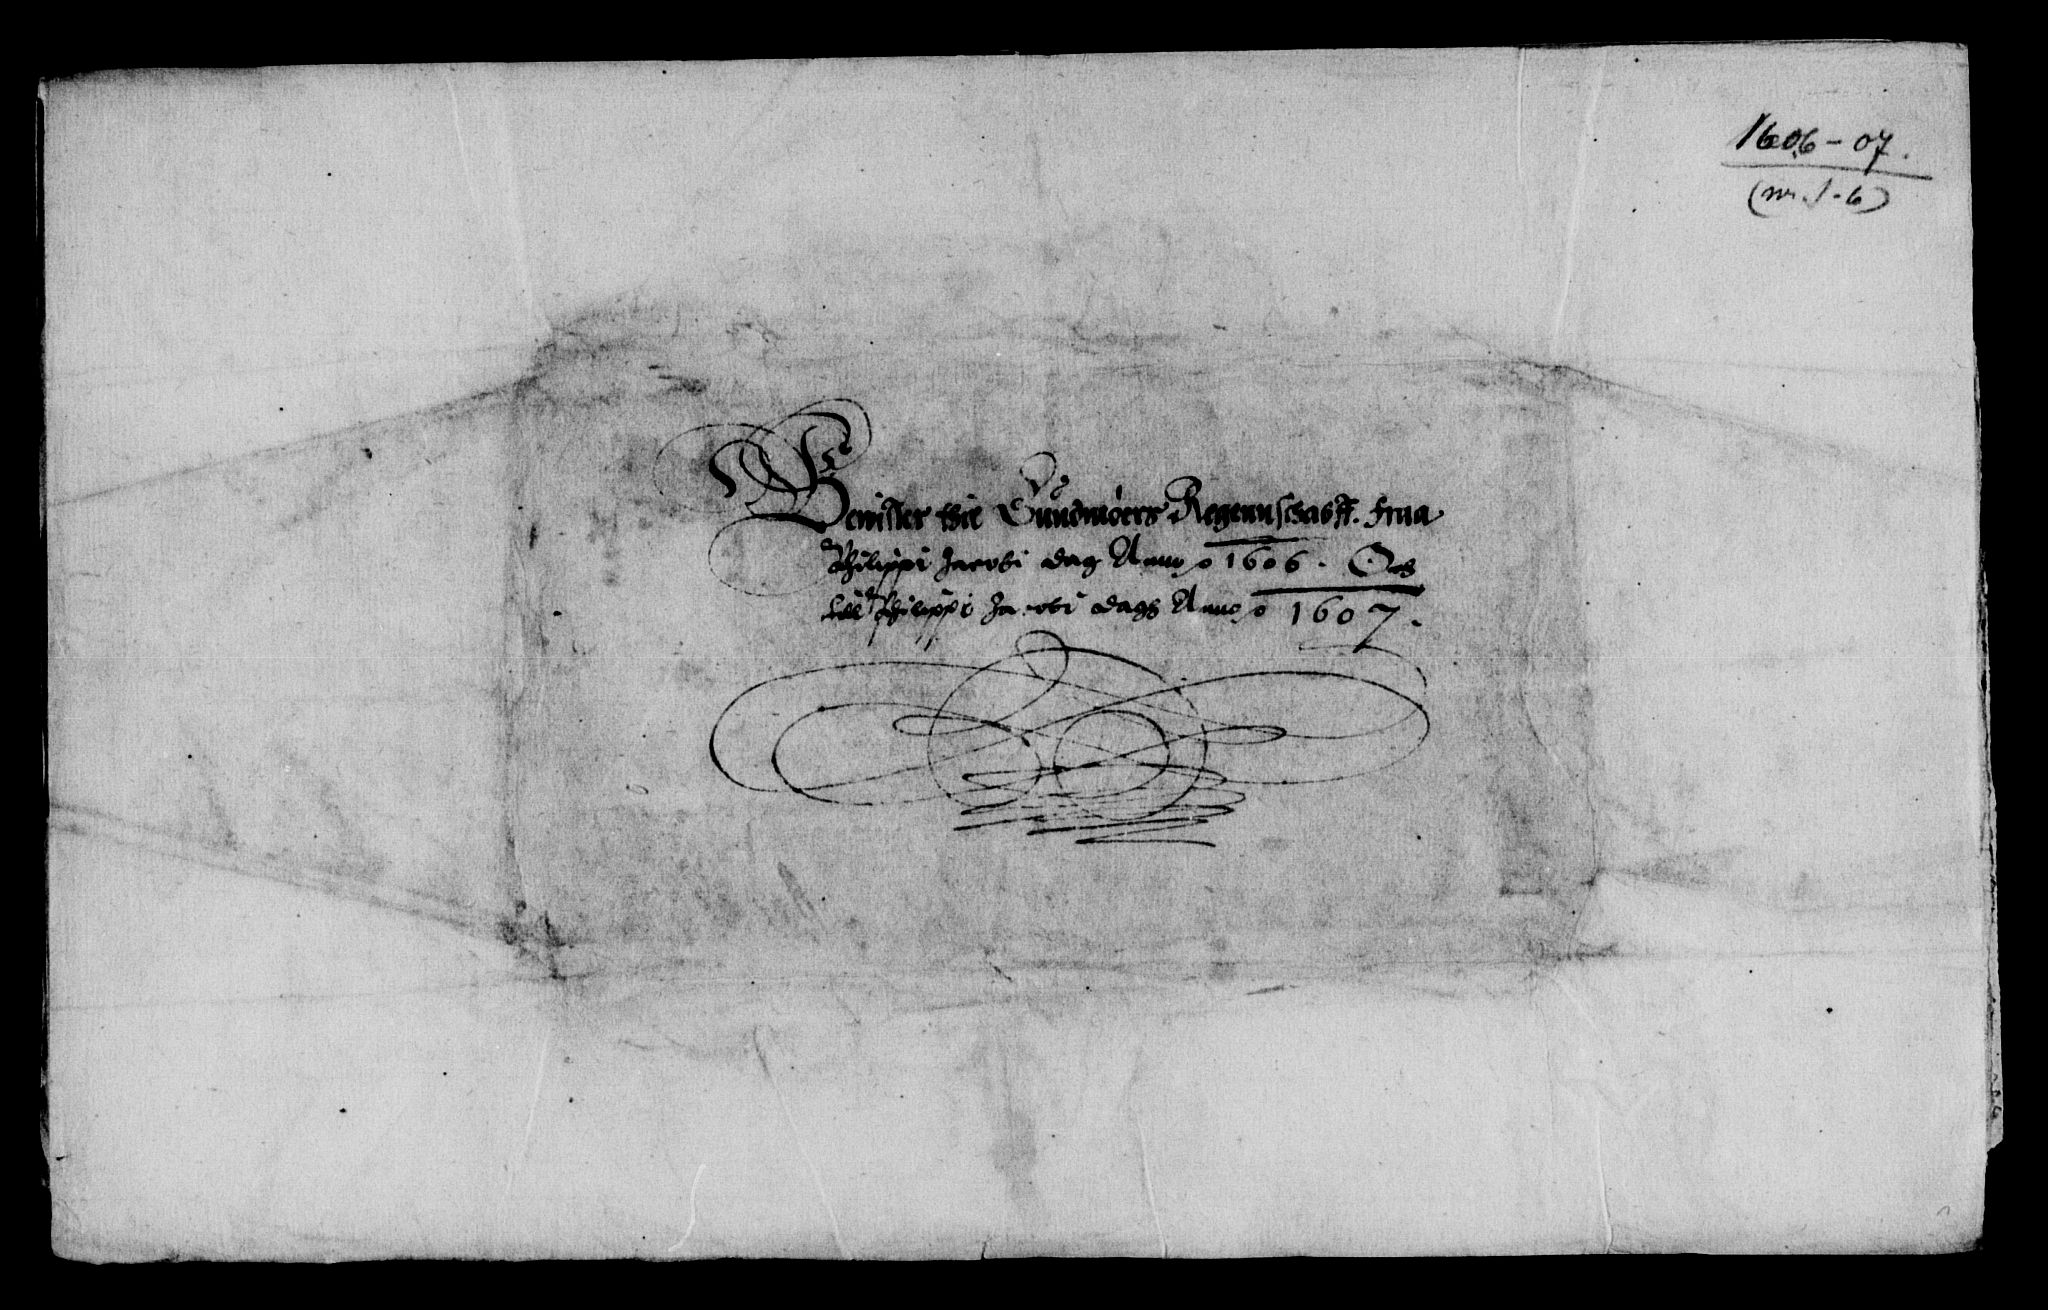 1606-07.
(nr. 1-6)
Beuister thil Sundmöers Regennschaff. frua
Philippi Jacobi dag Anno 1606. Och
till Philippi Jacobi dags Anno 1607.